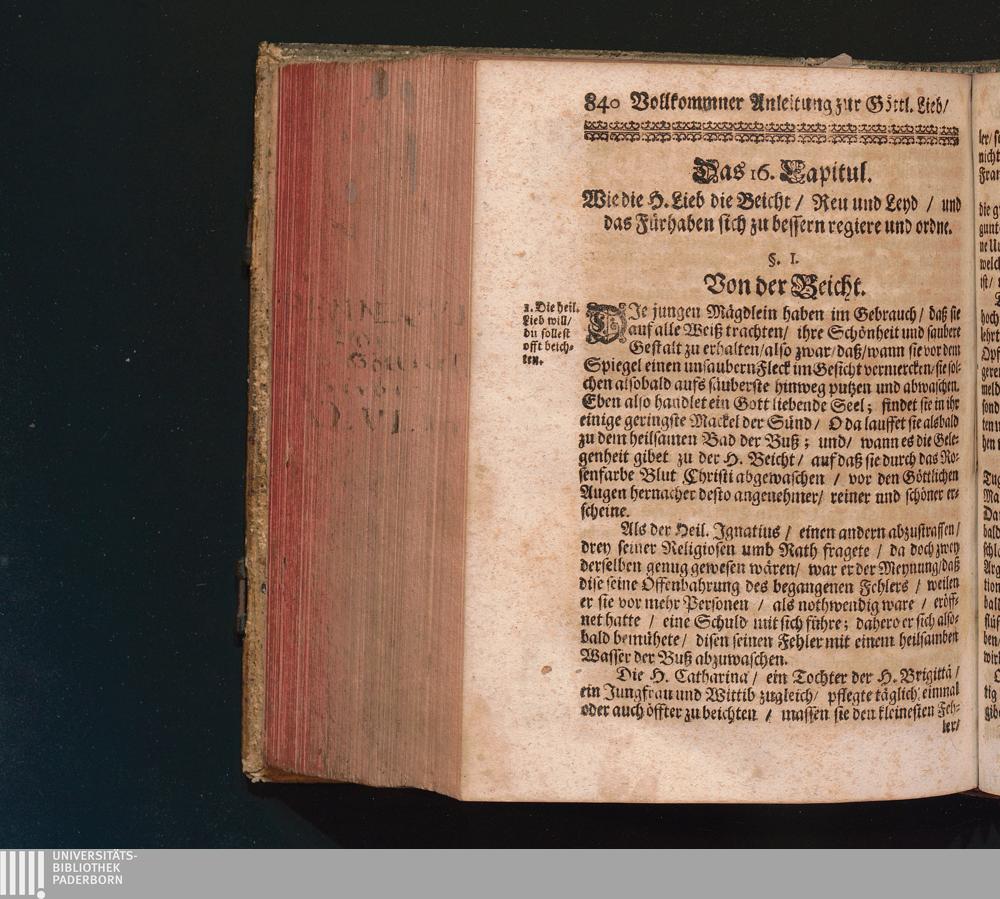 840 Vollkommner Anleitung zur Göttl. Lieb/
Das 16. Capitul.
Wie die H. Lieb die Beicht / Reu und Leyd / und
das Fürhaben sich zu bessern regiere und ordne.
§. I.
Von der Beicht.
1. Die heil.
Lieb will/
du sollest
offt beich-
ten.
DIe jungen Mägdlein haben im Gebrauch/ daß sie
auf alle Weiß trachten/ ihre Schönheit und saubere
Gestalt zu erhalten/also zwar/daß/wann sie vor dem
Spiegel einen unsaubern Fleck im Gesicht vermercken/sie sol-
chen alsobald aufs säuberste hinweg putzen und abwaschen.
Eben also handlet ein Gott liebende Seel; findet sie in ihr
einige geringste Mackel der Sünd/ O da lauffet sie alsbald
zu dem heilsamen Bad der Buß; und/ wann es die Gele-
genheit gibet zu der H. Beicht/ auf daß sie durch das Ro-
senfarbe Blut Christi abgewaschen/ vor den Göttlichen
Augen hernacher desto angenehmer/ reiner und schöner er-
scheine.
Als der Heil. Ignatius / einen andern abzustraffen/
drey seiner Religiosen umb Rath fragete / da doch zwey
derselben genug gewesen wären/ war er der Meynung/daß
dise seine Offenbahrung des begangenen Fehlers / weilen
er sie vor mehr Personen / als nothwendig ware / eröff-
net hatte / eine Schuld mit sich führe; dahero er sich also-
bald bemühete/ disen seinen Fehler mit einem heilsamben
Wasser der Buß abzuwaschen.
Die H. Catharina/ ein Tochter der H. Brigittä/
ein Jungfrau und Wittib zugleich/ pflegte täglich einmal
oder auch öffter zu beichten / massen sie den kleinesten Feh-
ler/
UNIVERSITÄTS-
BIBLIOTHEK
PADERBORN